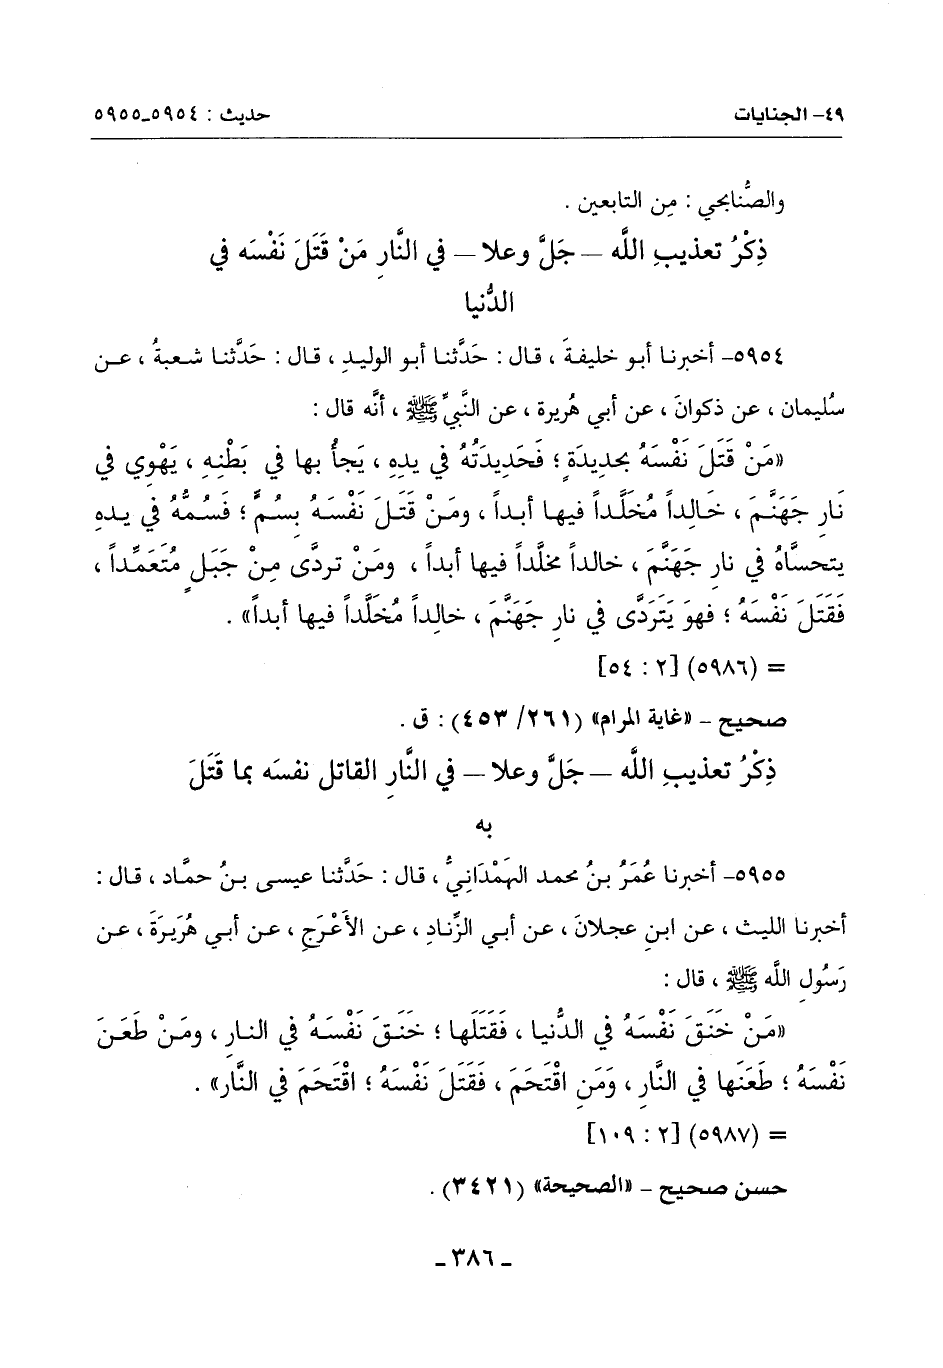 ٤٩- الجنايات حديث : ٥٩٥٤-٥٩٥٥
والصُّنابحي : مِن التابعين .
ذِكْرُ تعذيبِ اللَّه – جَلَّ وعلا – في النَّارِ مَنْ قَتَلَ نَفْسَه في
الدُّنيا
٥٩٥٤- أخبرنا أبو خليفةَ ، قال : حَدَّثنا أبو الوليدِ ، قال : حَدَّثنا شعبةُ ، عن
سُليمان ، عن ذكوانَ ، عن أبي هُريرة ، عن النَّبيِّ ﷺ ، أنَّه قال :
«مَنْ قَتَلَ نَفْسَهُ بحديدَةٍ ؛ فَحَدِيدَتُهُ في يدِهِ ، يَجأُ بها في بَطْنِهِ ، يَهْوِي في
نَارِ جَهَنَّمَ ، خَالِداً مُخَلَّداً فيها أبداً ، ومَنْ قَتَلَ نَفْسَهُ بسُمٍّ ؛ فَسُمُّهُ في يدهِ
يتحسَّاهُ في نارِ جَهَنَّمَ ، خالداً مخلَّداً فيها أبداً ، ومَنْ تردَّى مِنْ جَبَلٍ مُتَعَمِّداً ،
فَقَتَلَ نَفْسَهُ ؛ فهوَ يَتَرَدَّى في نارِ جَهَنَّمَ ، خالِداً مُخَلَّداً فيها أبداً» .
= (٥٩٨٦) [٢ : ٥٤]
صحيح – «غاية المرام» (٢٦١/ ٤٥٣) : ق .
ذِكْرُ تعذيبِ اللَّه – جَلَّ وعلا – في النَّارِ القاتل نفسَه بما قَتَلَ
به
٥٩٥٥- أخبرنا عُمَرُ بنُ محمد الهَمْدَانِيُّ ، قال : حَدَّثنا عيسى بنُ حمَّاد ، قال :
أخبرنا الليث ، عن ابنِ عجلانَ ، عن أبي الزِّنادِ ، عن الأَعْرَجِ ، عن أبي هُرَيرَةَ ، عن
رَسُولِ اللَّه ﷺ ، قال :
«مَنْ خَنَقَ نَفْسَهُ في الدُّنيا ، فَقَتَلَها ؛ خَنَقَ نَفْسَهُ في النار ، ومَنْ طَعَنَ
نَفْسَهُ ؛ طَعَنَها في النَّارِ ، وَمَنِ اقْتَحَمَ ، فَقَتَلَ نَفْسَهُ ؛ اقْتَحَمَ في النَّار» .
= (٥٩٨٧) [٢ : ١٠٩]
حسن صحيح – «الصحيحة» (٣٤٢١) .
- ٣٨٦ -